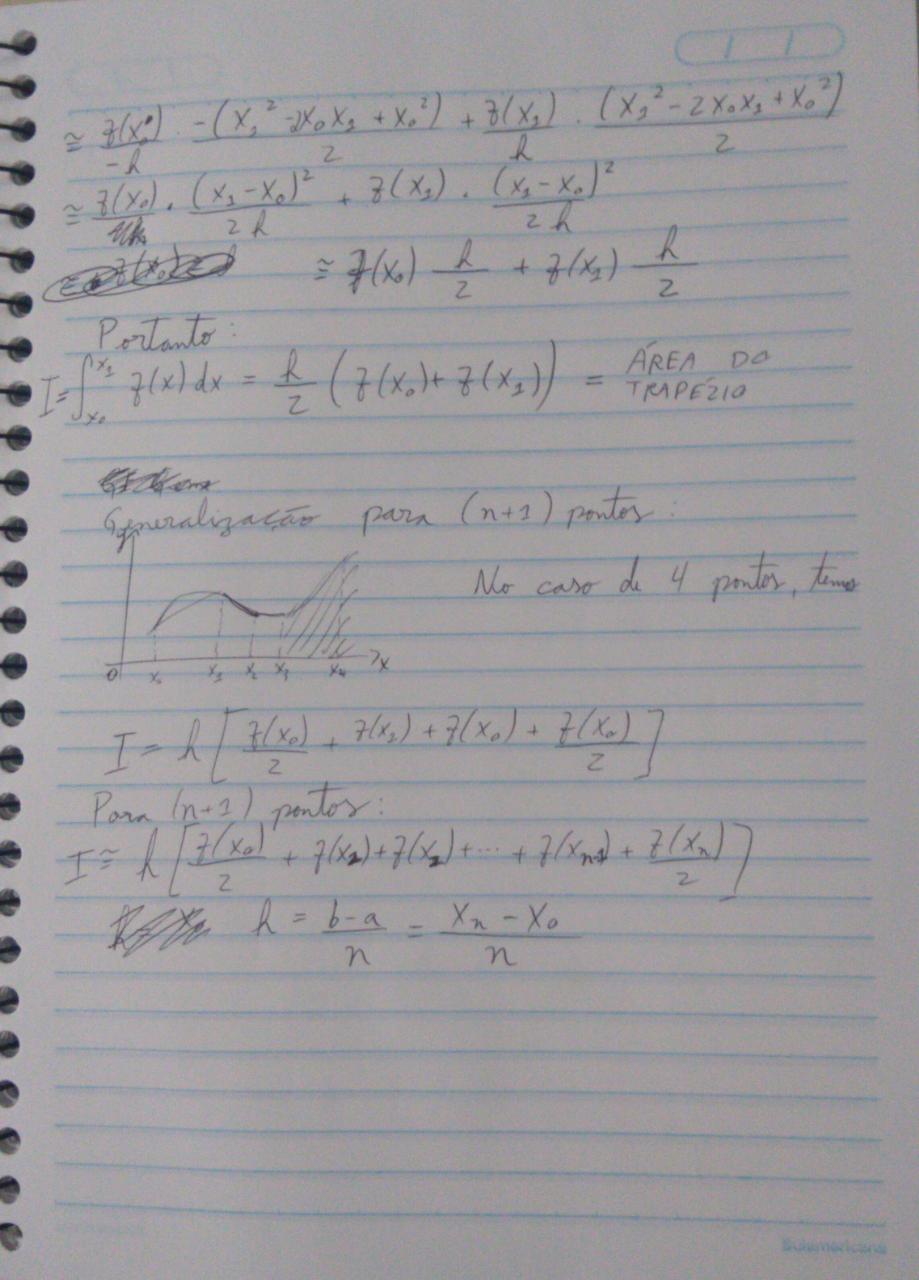 ≅ f(x₀)/-h · -(x₁² - 2x₀x₁ + x₀²)/2 + f(x₁)/h · (x₁² - 2x₀x₁ + x₀²)/2
≅ f(x₀) · (x₁ - x₀)²/2h + f(x₁) · (x₁ - x₀)²/2h
≅ f(x₀) h/2 + f(x₁) h/2
Portanto:
I = ∫_{x₀}^{x₁} f(x) dx = h/2 (f(x₀) + f(x₁)) = ÁREA DO TRAPÉZIO
Generalização para (n+1) pontos:
No caso de 4 pontos, temos
y
0 x₀ x₁ x₂ x₃ x₄ x
I = h [f(x₀)/2 + f(x₁) + f(x₀) + f(x₀)/2]
Para (n+1) pontos:
I ≅ h [f(x₀)/2 + f(x₁) + f(x₂) + ... + f(xₙ₋₁) + f(xₙ)/2]
h = b-a/n = xₙ - x₀/n
Sulamericana